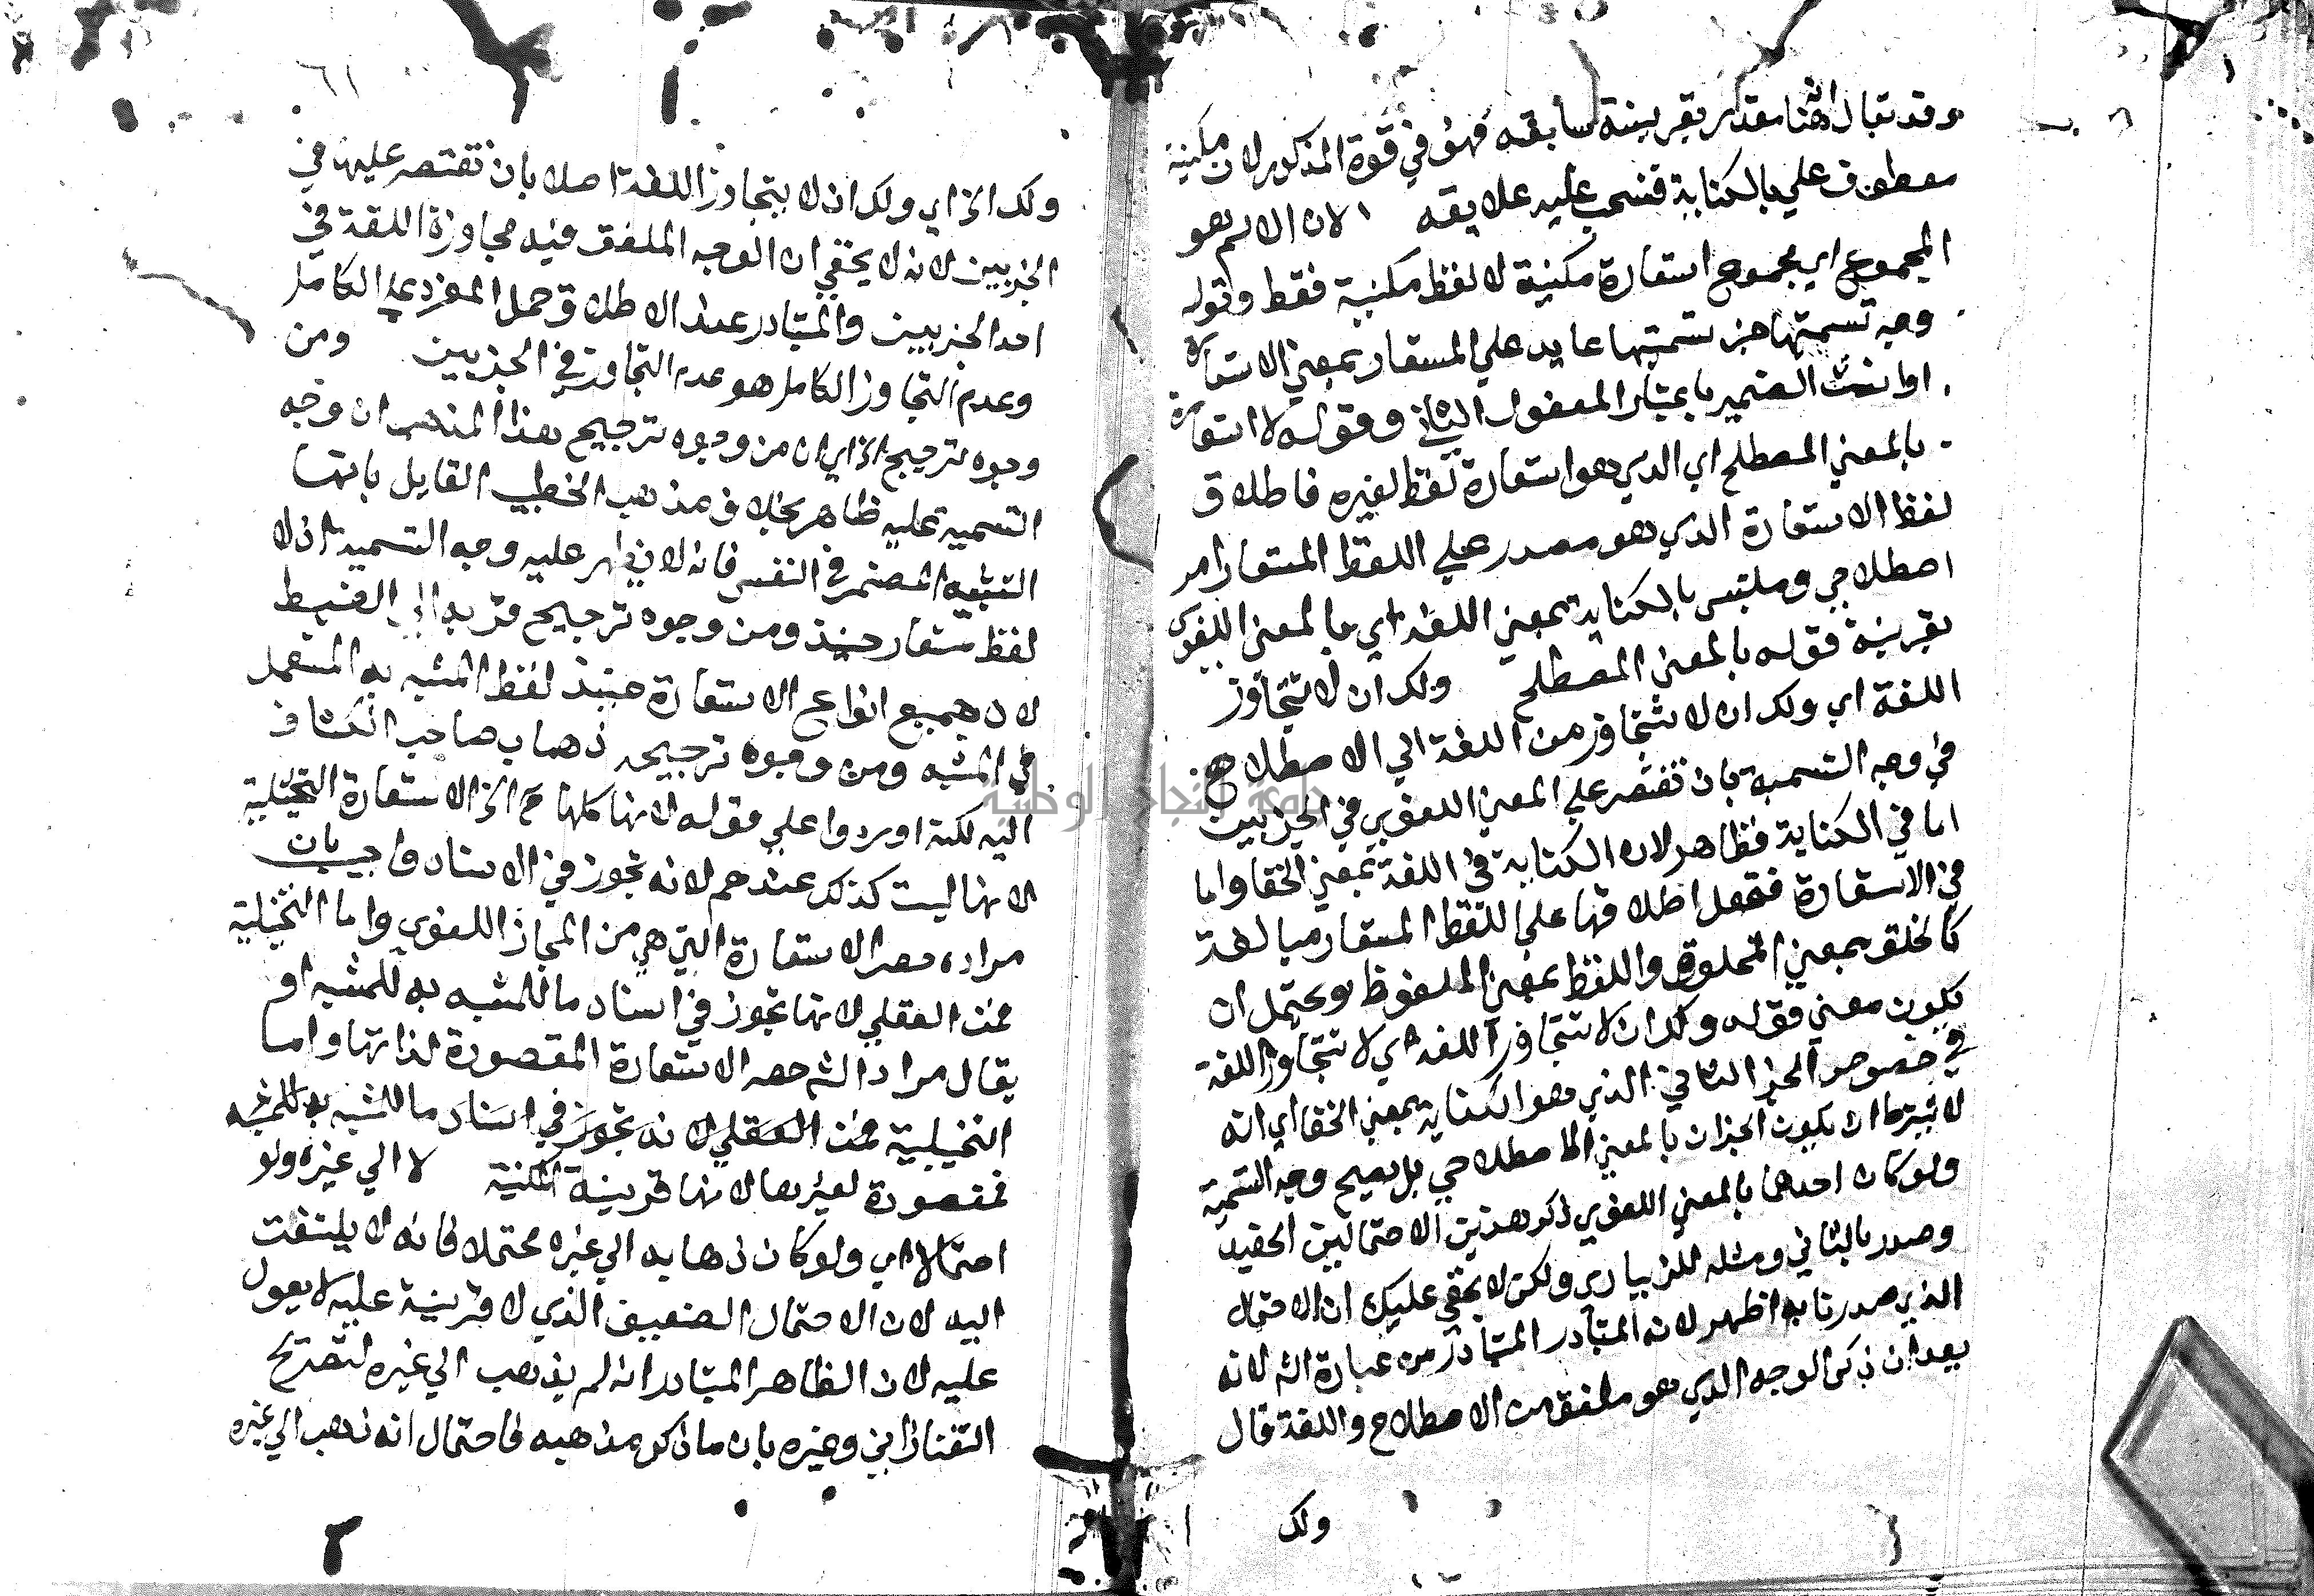 وقد يقال انه هنا مقدر بقرينة سابقه فهو في قوة المذكور لان مكنية
معطوف علي بالكناية فنسحب عليه علايقه الان الاسم هو
المجموع اي مجموع استعارة مكنية لا لفظ مكنية فقط وقوله
وجه تسميتها تسميتها عايد علي المستعار بمعني الاستعارة
او انث الضمير باعتبار المفعول الثاني وقوله لا استعارة
بالمعني المصطلح اي الذي هو استعارة لفظ لغيره فاطلاق
لفظ الاستعارة الذي هو مصدر علي اللفظ المستعار امر
اصطلاحي وملتبس بالكناية بمعني اللغة اي بالمعني اللغوي
بقرينة قوله بالمعني المصطلح ولك ان لا تتجاوز
اللغة اي ولك ان لا تتجاوز من اللغة الي الاصطلاح
في وجه التسمية بان تقتصر علي المعني اللغوي في الجزيين
اما في الكناية فظاهر لان الكناية في اللغة بمعني الخفا واما
في الاستعارة فتجعل اطلاقها علي اللفظ المستعار مبالغة
كالخلق بمعني المخلوق واللفظ بمعني الملفوظ ويحتمل ان
يكون معني قوله ولك ان لا تتجاوز اللغة اي لا تتجاوز اللغة
في خصوص الجز الثاني الذي هو الكناية بمعني الخفا اي انه
لا يشترط ان يكون الجزان بالمعني الاصطلاحي بل يصح وجه التسمية
ولو كان احدهما بالمعني اللغوي ذكر هذين الاحتمالين الحفيد
وصدر بالثاني ومثله للزيباري ولكن لا يخفي عليك ان الاحتمال
الذي صدرنا به اظهر لانه المتبادر المتبادر من عبارة الش لانه
بعد ان ذكر الوجه الذي هو ملفق من الاصطلاح واللغة قال
ولك
٦١
ولك الخ اي ولك ان لا يتجاوز اللغة اصلا بان تقتصر عليها في
الجزيين لانه لا يخفي ان الوجه الملفق فيه مجاوزة اللغة في
احد الجزيين والمتبادر عند الاطلاق حمل المفرد علي الكامل
وعدم التجاوز الكامل هو عدم التجاوز في الجزيين ومن
وجوه ترجيح الخ اي ان من وجوه ترجيح هذا المذهب ان وجه
التسمية عليه ظاهر بخلاف مذهب الخطيب القايل بانها
التشبيه المضمر في النفس فانه لا يظهر عليه وجه التسمية اذ لا
لفظ مستعار حينيذ ومن وجوه ترجيح قربه الي الضبط
لان جميع انواع الاستعارة حينيذ لفظ المشبه به المستعمل
في المشبه ومن وجوه ترجيحه ذهاب صاحب الكشاف
اليه لكنه اوردوا علي قوله لانها كلها الخ الاستعارة التخيلية
لانها ليست كذلك عندهم لانه تجوز في الاسناد واجيب بان
مراده حصر الاستعارة التي هي من المجاز اللغوي واما التخيلية
فمن العقلي لانها تجوز في اسناد ما للمشبه به للمشبه او
يقال مراد الش حصر الاستعارة المقصورة لذاتها واما
التخيلية فمن العقلي لانه تجوز في اسناد ما للمشبه به للمشبه
فمقصودة لغيرها لانها قرينة المكنية لا الي غيره ولو
احتمالا اي ولو كان ذهابه الي غيره محتملا فانه لا يلتفت
اليه لان الاحتمال الضعيف الذي لا قرينة عليه لا يعول
عليه لان الظاهر المتبادر انه لم يذهب الي غيره لتصريح
التفتازاني وغيره بان ما ذكر مذهبه فاحتمال انه ذهب الي غيره
جامعة النجاح الوطنية